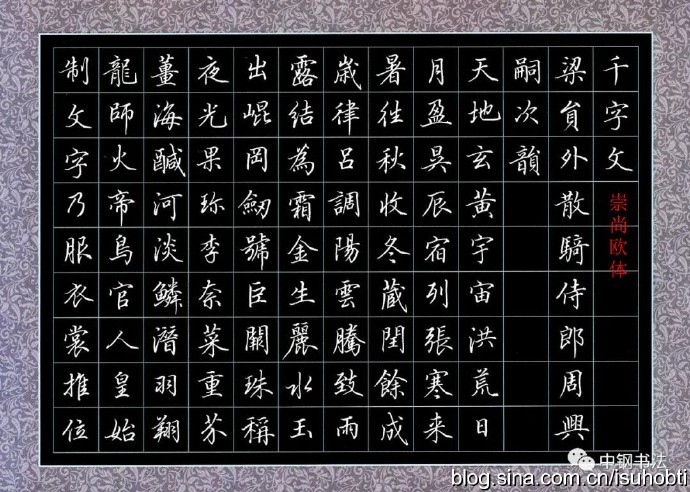 千字文
梁貟外散騎侍郎周興
嗣次韻
天地玄黃宇宙洪荒日
月盈昃辰宿列張寒来
暑往秋收冬蔵閏餘成
歳律呂調陽雲騰致雨
露結為霜金生麗水玉
出崐岡劒號巨闕珠稱
夜光果珎李奈菜重芥
薑海醎河淡鱗潛羽翔
龍師火帝鳥官人皇始
制文字乃服衣裳推位
崇尚欧体
中钢书法
blog.sina.com.cn/isuhobti